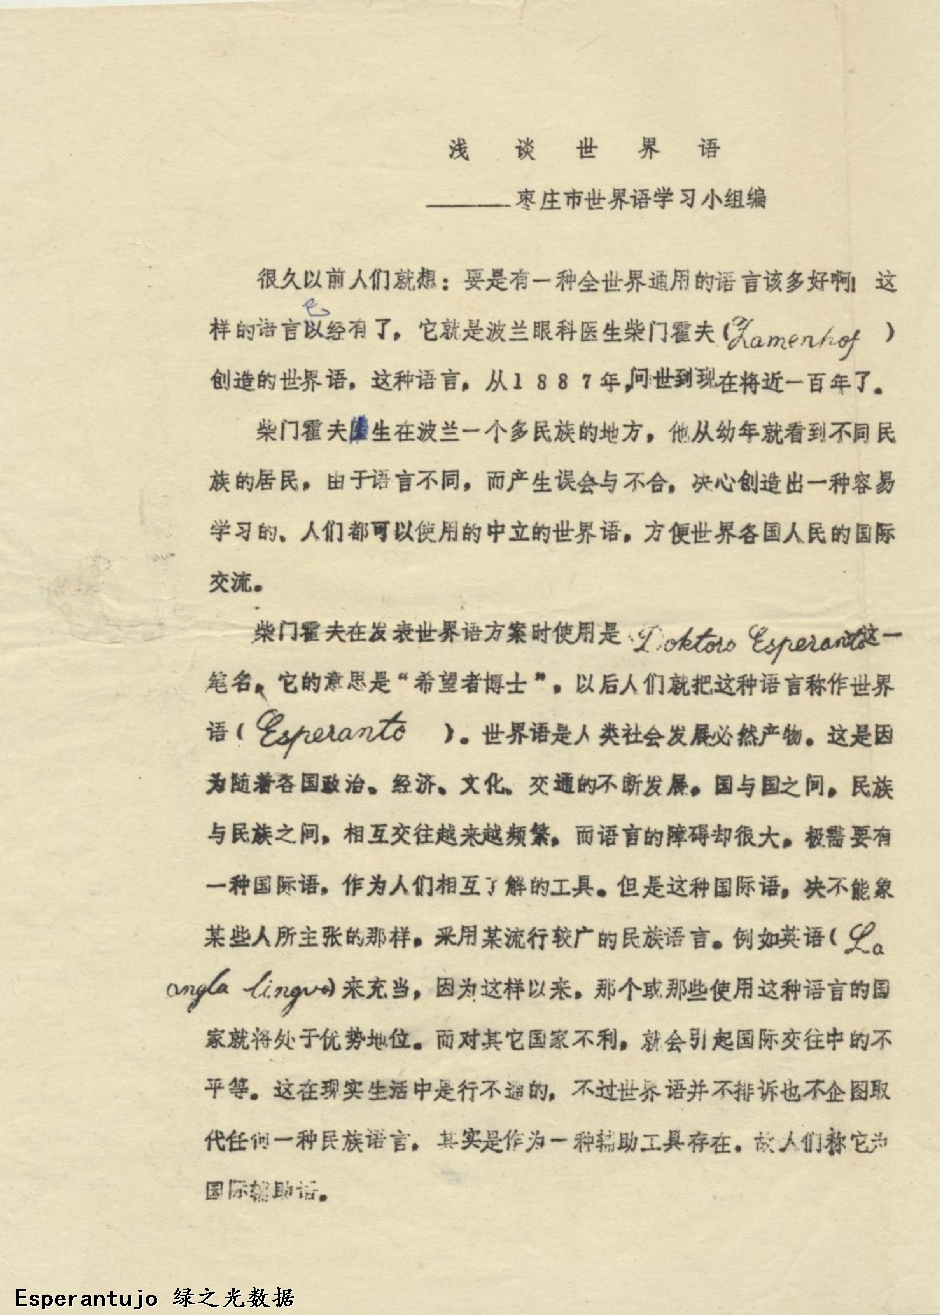 浅谈世界语
———枣庄市世界语学习小组编
很久以前人们就想：要是有一种全世界通用的语言该多好啊！这
已
样的语言以经有了，它就是波兰眼科医生柴门霍夫（Zamenhof）
创造的世界语，这种语言，从1887年，问世到现在将近一百年了。
柴门霍夫生在波兰一个多民族的地方，他从幼年就看到不同民
族的居民，由于语言不同，而产生误会与不合，决心创造出一种容易
学习的、人们都可以使用的中立的世界语，方便世界各国人民的国际
交流。
柴门霍夫在发表世界语方案时使用是 Doktoro Esperanto 这一
笔名，它的意思是“希望者博士”，以后人们就把这种语言称作世界
语（Esperanto）。世界语是人类社会发展必然产物。这是因
为随着各国政治、经济、文化、交通的不断发展，国与国之间，民族
与民族之间，相互交往越来越频繁，而语言的障碍却很大，极需要有
一种国际语，作为人们相互了解的工具。但是这种国际语，决不能象
某些人所主张的那样，采用某流行较广的民族语言。例如英语（La
angla lingvo）来充当，因为这样以来，那个或那些使用这种语言的国
家就将处于优势地位。而对其它国家不利，就会引起国际交往中的不
平等。这在现实生活中是行不通的，不过世界语并不排诉也不企图取
代任何一种民族语言，其实是作为一种辅助工具存在。故人们称它为
国际辅助语。
Esperantujo 绿之光数据